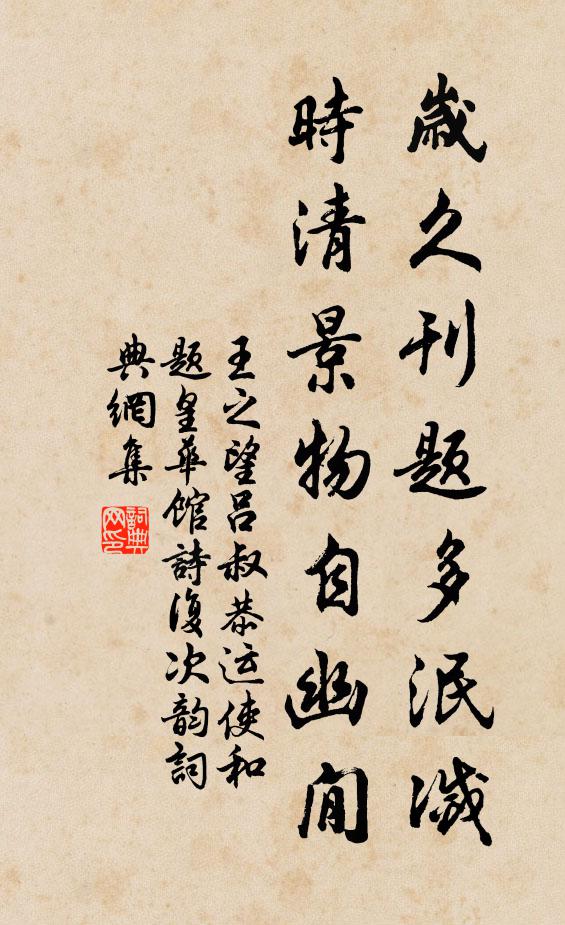 歲久刊题多泯滅
時清景物自幽閒
王之望呂叔恭运使和
题皇華館詩復次韵詞
典網集
詞典网印